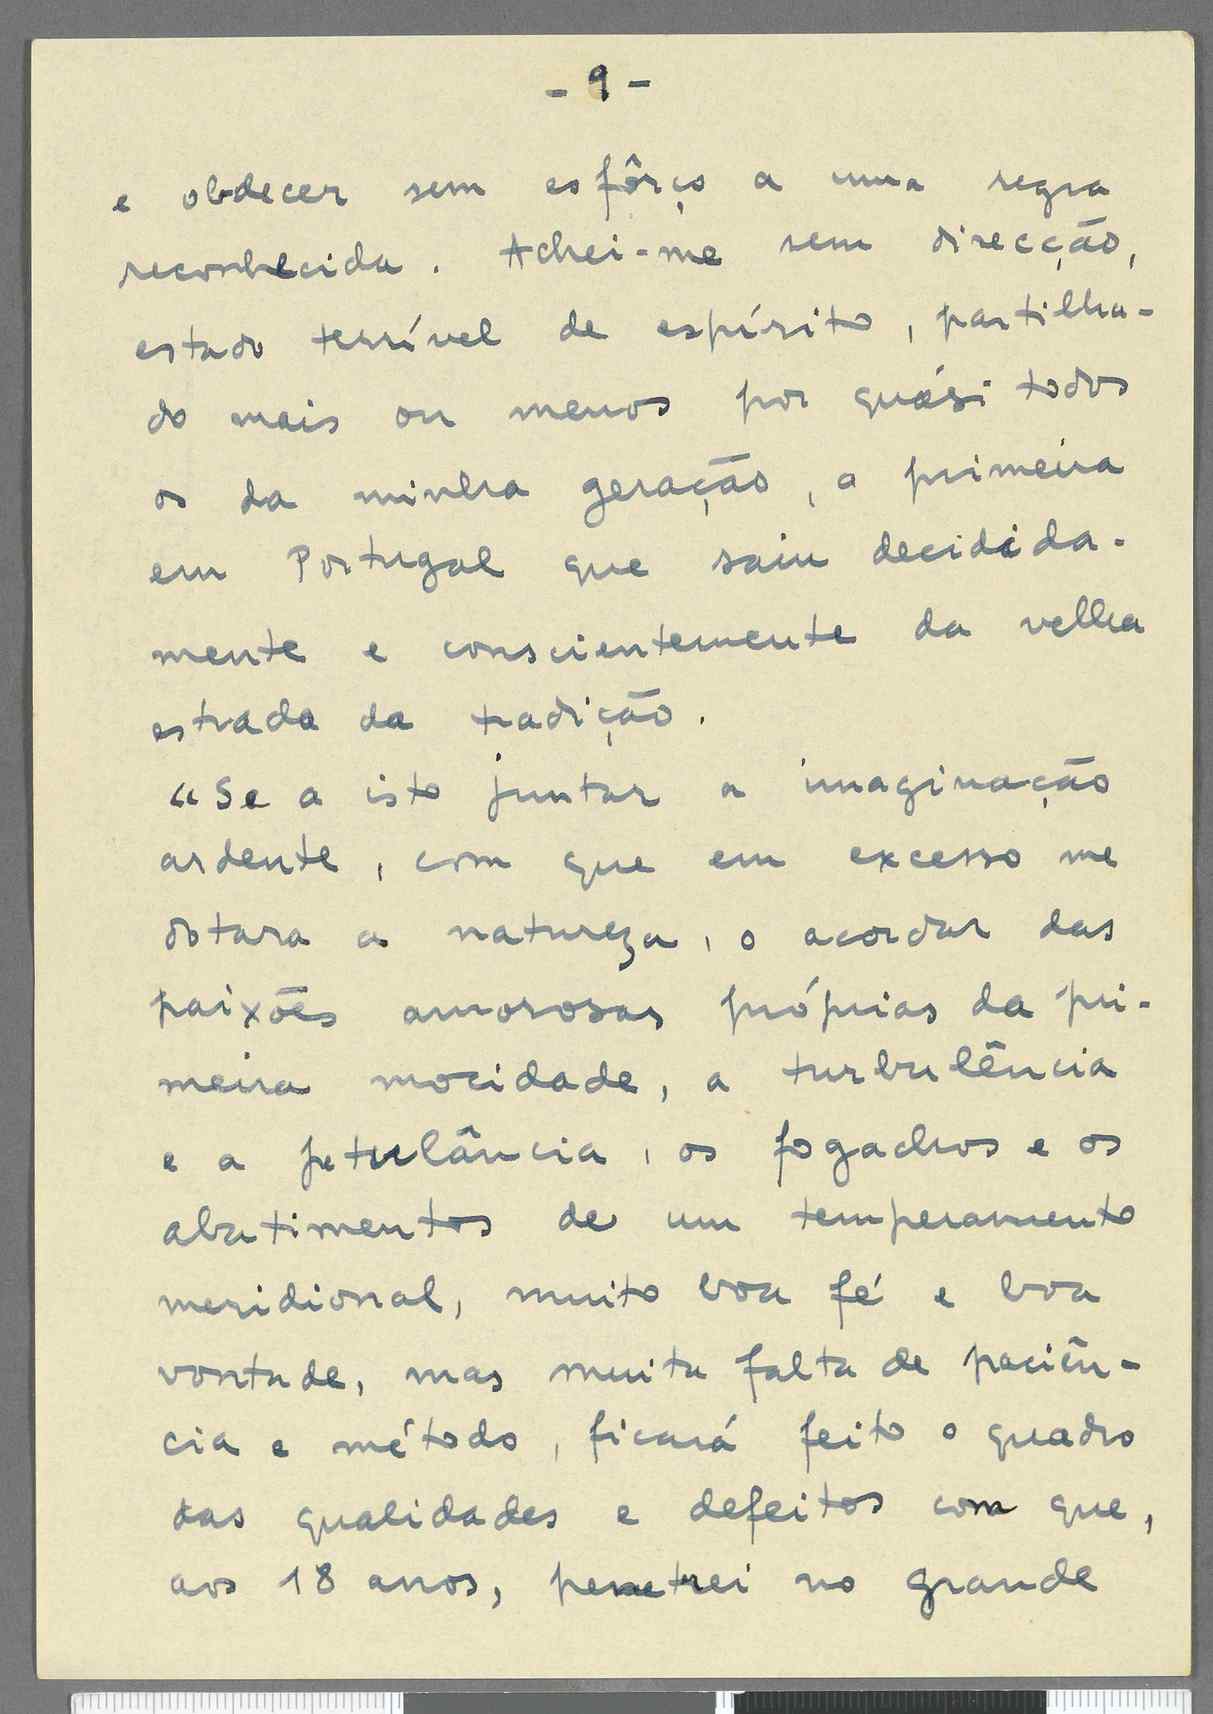 - 9 -
e obdecer sem esfôrço a uma regra
reconhecida. Achei-me sem direcção,
estado terrível de espírito, partilha-
do mais ou menos por quási todos
os da minha geração, a primeira
em Portugal que saiu decidida-
mente e conscientemente da velha
estrada da tradição.
"Se a isto juntar a imaginação
ardente, com que em excesso me
dotara a natureza, o acordar das
paixões amorosas próprias da pri-
meira mocidade, a turbulência
e a petulância, os fogachos e os
abatimentos de um temperamento
meridional, muito boa fé e boa
vontade, mas muita falta de paciên-
cia e método, ficará feito o quadro
das qualidades e defeitos com que,
aos 18 anos, penetrei no grande